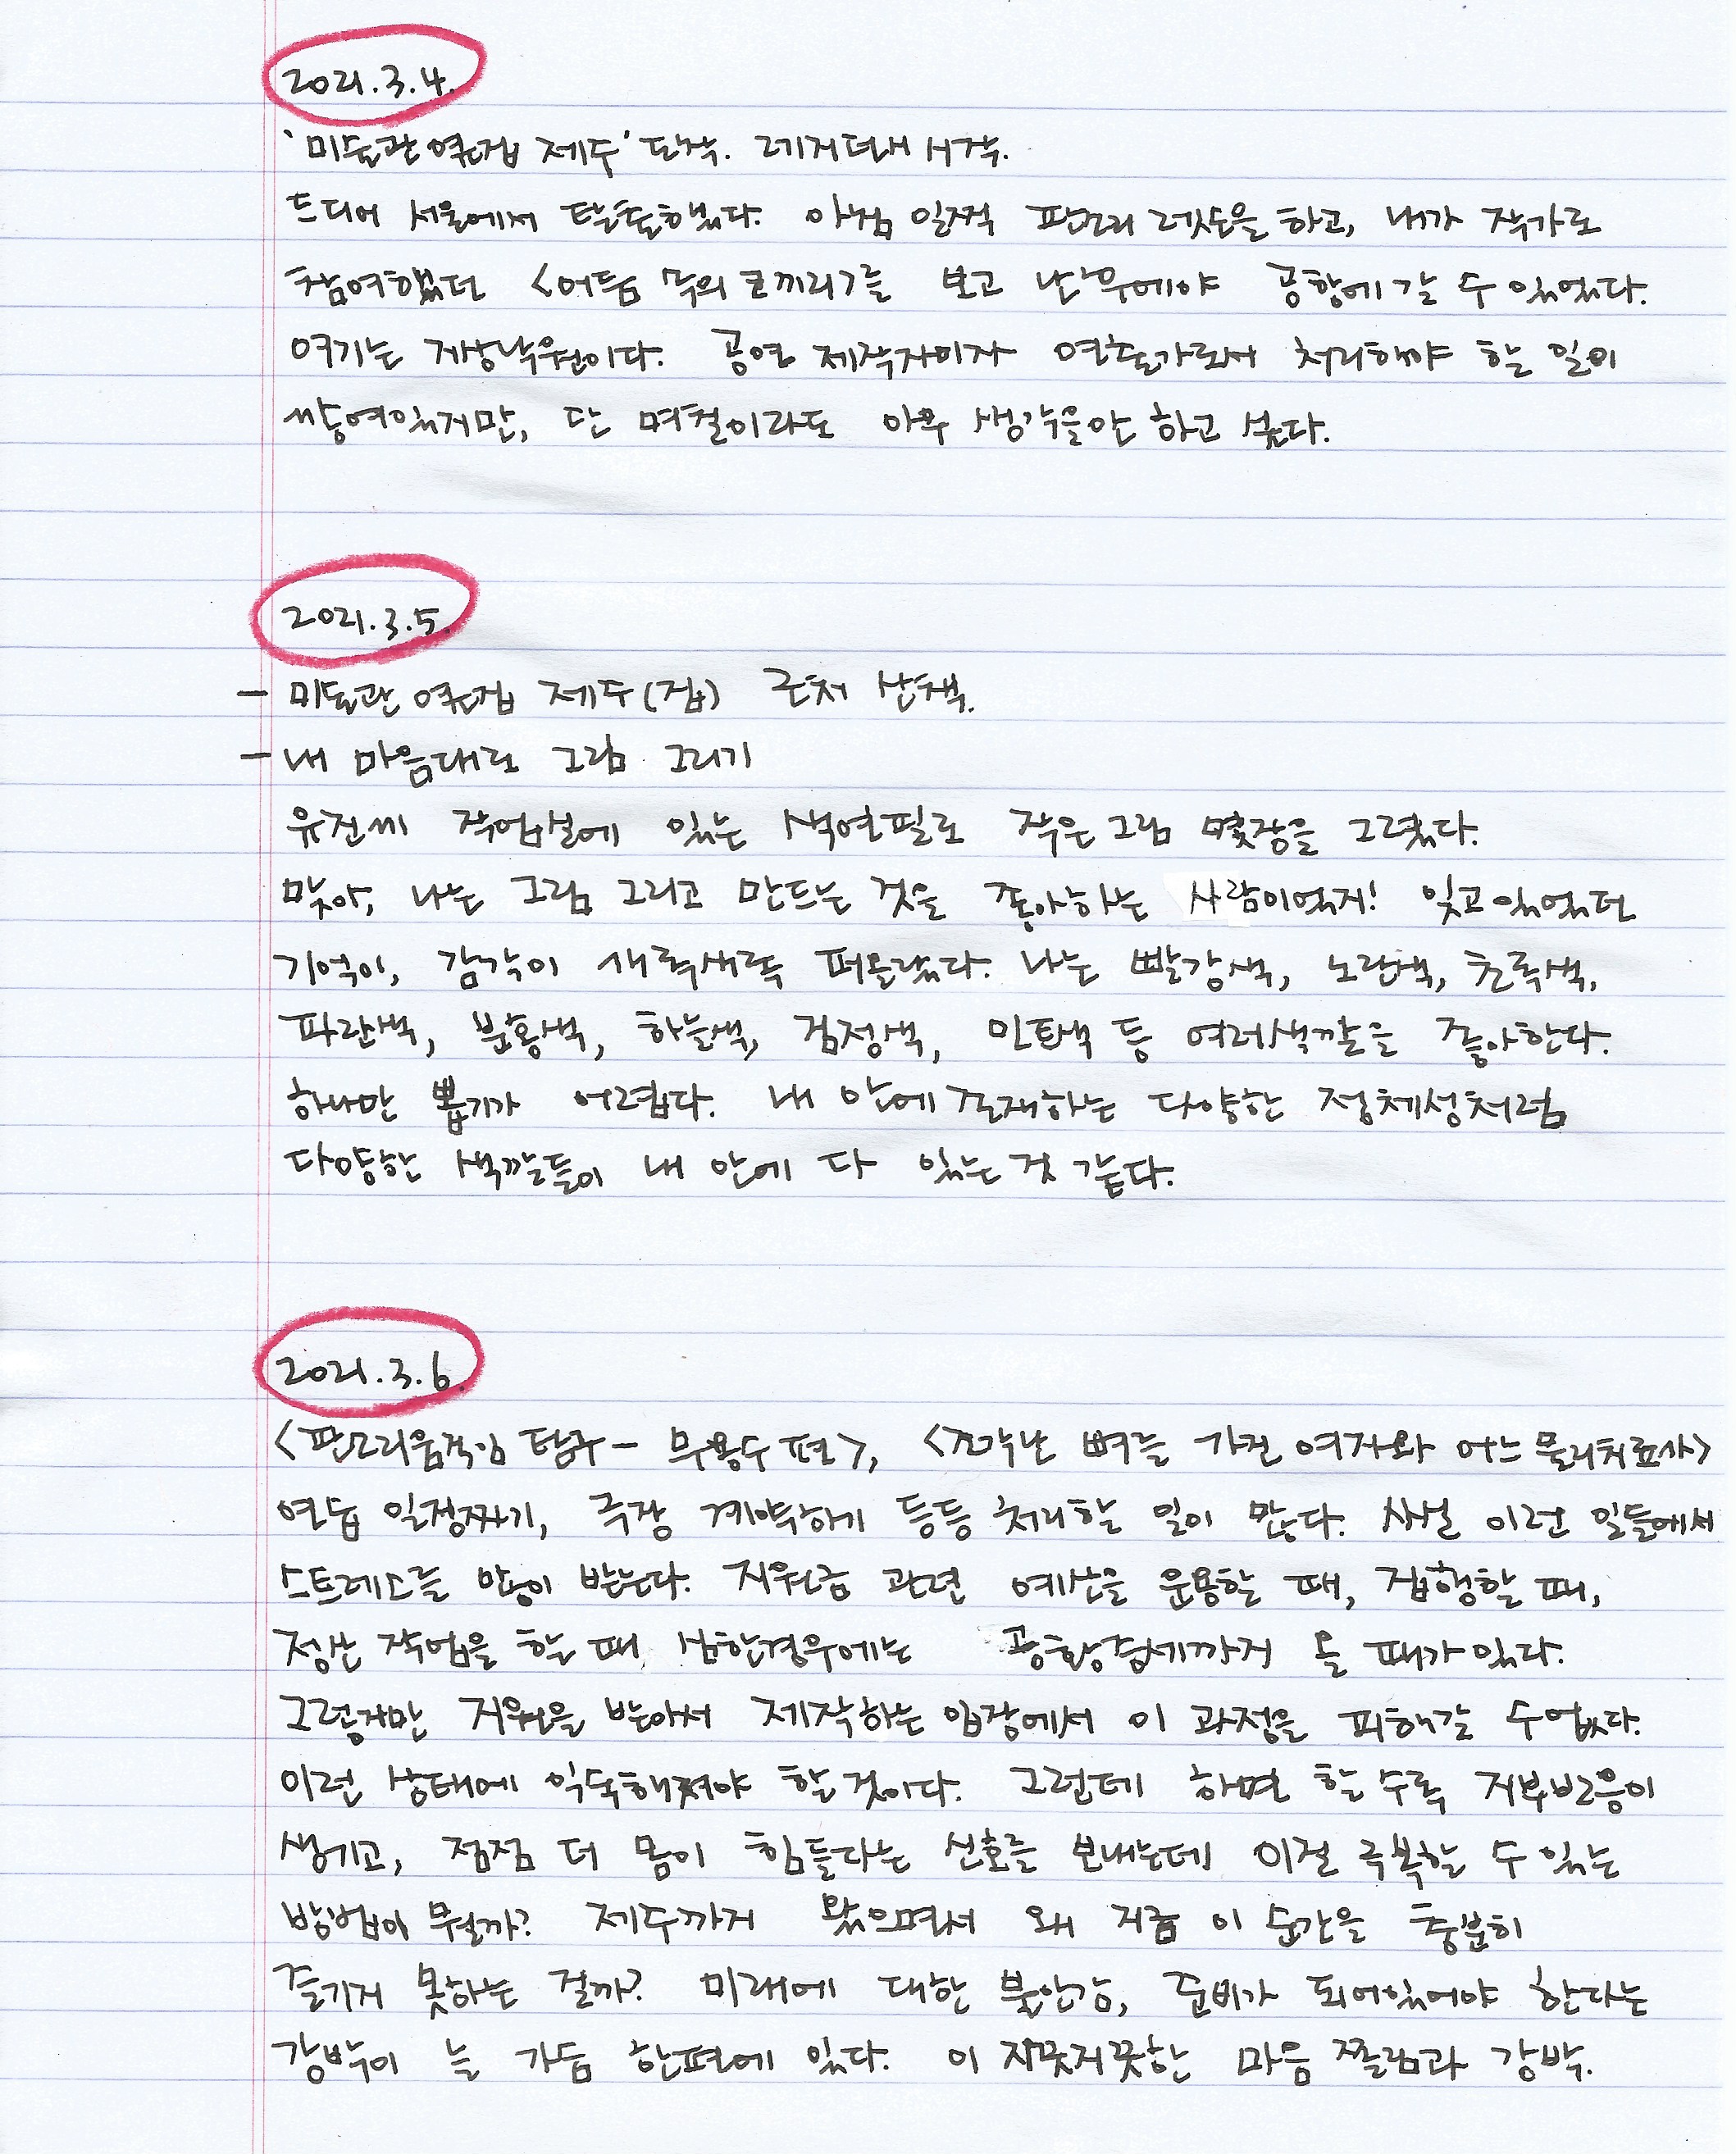 2021.3.4.
'미술관옆집 제주' 도착. 레지던시 시작.
드디어 서울에서 탈출했다. 아침 일찍 판소리 레슨을 하고, 내가 작가로
참여했던 <어둠 속의 코끼리>를 보고 난 후에야 공항에 갈 수 있었다.
여기는 지상낙원이다. 공연 제작자이자 연출가로서 처리해야 할 일이
쌓여있지만, 단 며칠이라도 아무 생각을 안 하고 싶다.
2021.3.5.
- 미술관옆집 제주(집) 근처 산책.
- 내 마음대로 그림 그리기
유진씨 작업실에 있는 색연필로 작은 그림 몇장을 그렸다.
맞아, 나는 그림 그리고 만드는 것을 좋아하는 사람이었지! 잊고 있었던
기억이, 감각이 새록새록 떠올랐다. 나는 빨강색, 노란색, 초록색,
파란색, 분홍색, 하늘색, 검정색, 민트색 등 여러 색깔을 좋아한다.
하나만 뽑기가 어렵다. 내 안에 존재하는 다양한 정체성처럼
다양한 색깔들이 내 안에 다 있는 것 같다.
2021.3.6.
<판소리움직임 탐구 - 무용수 편>, <조각난 뼈를 가진 여자와 어느 물리치료사>
연습 일정짜기, 극장 계약하기 등등 처리할 일이 많다. 사실 이런 일들에서
스트레스를 많이 받는다. 지원금 관련 예산을 운용할 때, 집행할 때,
정산 작업을 할 때, 심한경우에는 공황증세까지 올 때가 있다.
그렇지만 지원을 받아서 제작하는 입장에서 이 과정을 피해갈 수 없다.
이런 상태에 익숙해져야 할 것이다. 그런데 하면 할 수록 거부반응이
생기고, 점점 더 몸이 힘들다는 신호를 보내는데 이걸 극복할 수 있는
방법이 뭘까? 제주까지 왔으면서 왜 지금 이 순간을 충분히
즐기지 못하는 걸까? 미래에 대한 불안감, 준비가 되어있어야 한다는
강박이 늘 가슴 한편에 있다. 이 지긋지긋한 마음 쫄림과 강박.